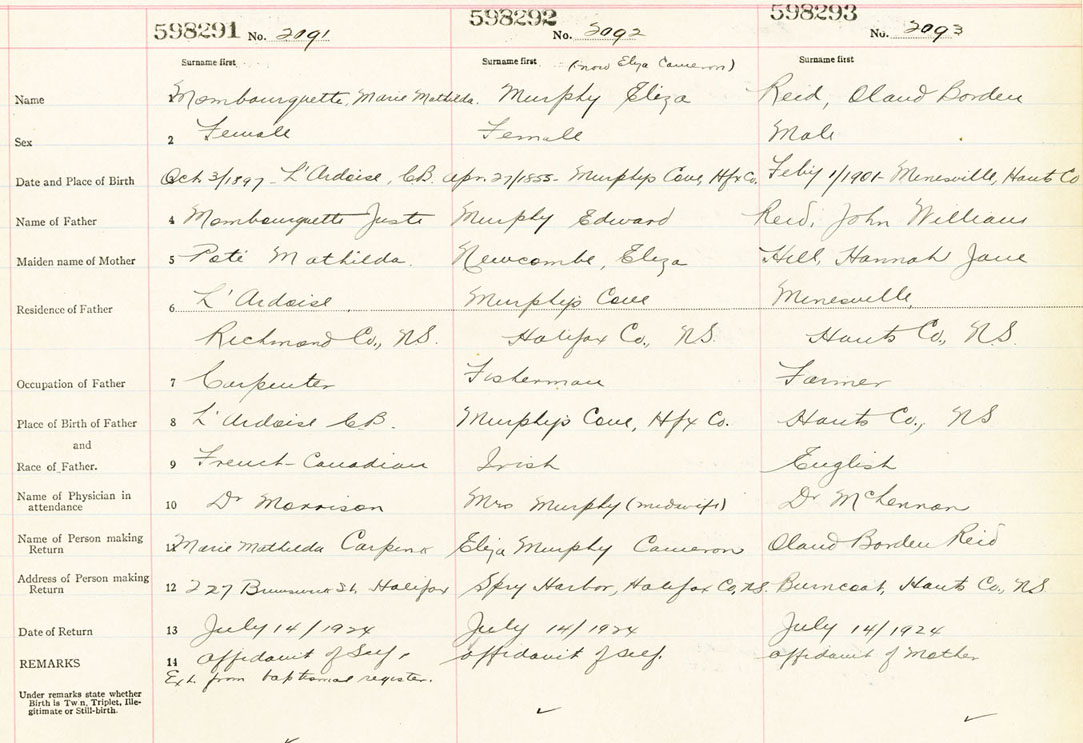 598291 No. 2091 598292 No. 2092 598293 No. 2093
Surname first Surname first (now Eliza Cameron) Surname first
Name 1 Mombourquette, Marie Mathilda. Murphy Eliza Reid, Oland Borden
Sex 2 Female Female Male
Date and Place of Birth 3 Oct 3/1897 - L'Ardoise, C.B. Apr. 27/1855 - Murphy's Cove, Hfx Co. Feb'y 1/1901 - Minesville, Hants Co
Name of Father 4 Mombourquette Juste Murphy Edward Reid, John William
Maiden name of Mother 5 Paté Mathilda. Newcombe, Eliza Hill, Hannah Jane
Residence of Father 6 L'Ardoise Murphy's Cove Minesville,
Richmond Co., N.S. Halifax Co., N.S. Hants Co., N.S.
Occupation of Father 7 Carpenter Fisherman Farmer
Place of Birth of Father 8 L'Ardoise C.B. Murphy's Cove, Hfx Co. Hants Co., N.S
and
Race of Father. 9 French-Canadian Irish English
Name of Physician in attendance 10 Dr Morrison Mrs Murphy (midwife) Dr McLennan
Name of Person making Return 11 Marie Mathilda Eliza Murphy Cameron Oland Borden Reid
Address of Person making Return 12 227 Brunswick St, Halifax Spry Harbor, Halifax Co, N.S. Burncoat, Hants Co., N.S.
Date of Return 13 July 14/1924 July 14/1924 July 14/1924
REMARKS 14 affidavit of Self, affidavit of self. affidavit of Mother
Ext. from baptismal register.
Under remarks state whether
Birth is Twin, Triplet, Ille-
gitimate or Still-birth.